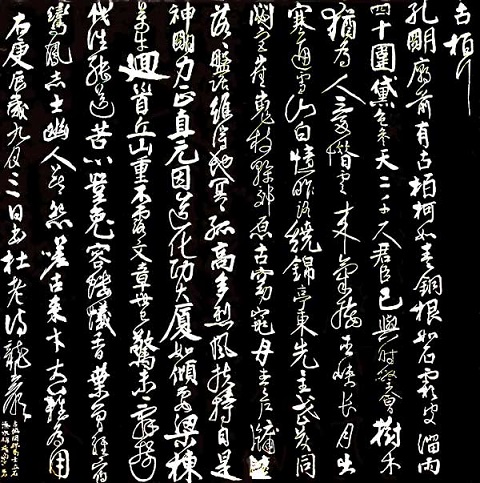 古柏行
孔明廟前有古柏柯如青銅根如石霜皮溜雨
四十圍黛色參天二千尺君臣已與時際會樹木
猶為人愛惜雲來氣接巫峽長月出
寒通雪山白憶昨路繞錦亭東先主武侯同
閟宮崔嵬枝幹郊原古窈窕丹青戶牖空
落落盤踞雖得地冥冥孤高多烈風扶持自是
神明力正直元因造化功大廈如傾要梁棟
萬牛迴首丘山重不露文章世已驚未辭翦
伐誰能送苦心豈免容螻蟻香葉曾經宿
鸞鳳志士幽人莫怨嗟古來材大難為用
右庚辰歲九月日書杜老詩龍巖